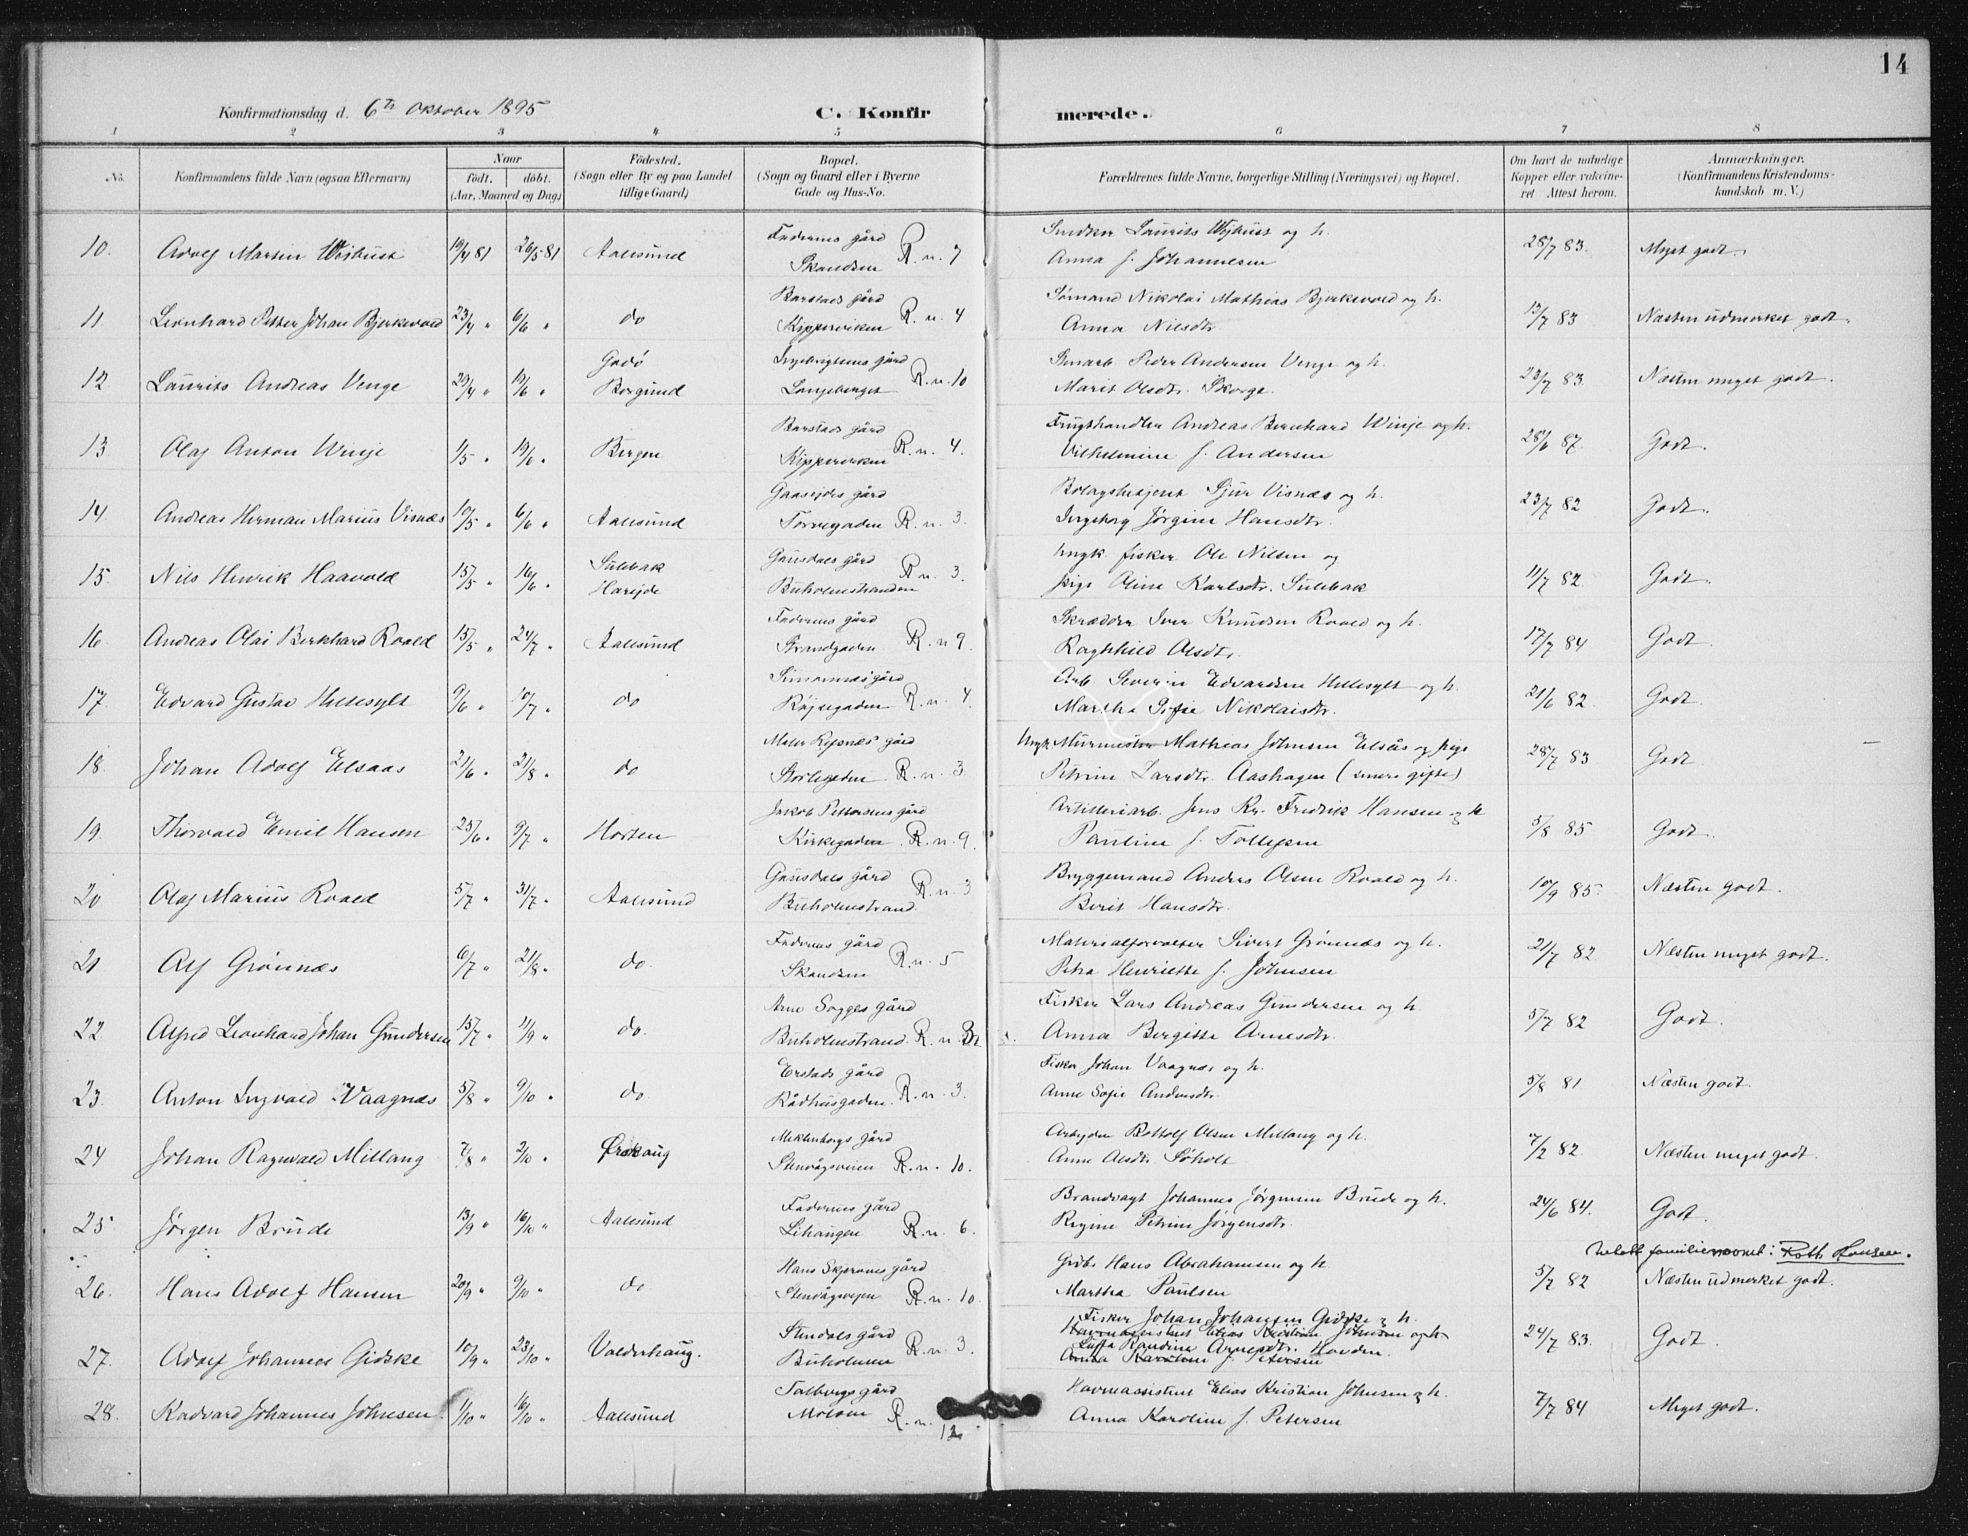 14
Konfirmationsdag d. 6te Oktober 1895 C. Konfirmerede.
1 2 3 4 5 6 7 8
No. Konfirmandens fulde Navn (ogsaa Efternavn) Naar født. døbt. (Aar, Maaned og Dag) Fødested. (Sogn eller By og paa Landet tillige Gaard) Bopæl. (Sogn og Gaard eller i Byerne Gade og Hus-No. Forældrenes fulde Navne, borgerlige Stilling (Næringsvei) og Bopæl. Om havt de naturlige Kopper eller vaccineret Attest herom. Anmærkninger. (Konfirmandens Kristendomskundskab m. V.)
10. Adolf Martin 19/4 81 26/5 81 Aalesund Faderens gård Skandsen R. n. 7 Snedker Laurits og h. Anna f. Johannesen 28/7 83. Meget godt.
11 Leonhard Petter Johan Bjerkevold 23/4 " 6/6 " do Barstads gård Kipperviken R. n. 4 Sømand Nikolai Mathias Bjerkevold og h. Anna Nilsdtr 13/7 83 Næsten udmerket godt.
12 Laurits Andreas Venge 29/4 " 19/6 " Godø Borgund Ingebrigtsens gård Langeberget R. n. 10 Peder Andersen Venge og h. Marit Olsdtr. Skorge 23/7 83. Næsten meget godt.
13 Olaf Anton Winje 1/5 " 19/6 " Bergen Barstads gård Kipperviken R. n. 4. Frugthandler Andreas Bernhard Winje og h. Vilhelmine f. Andersen 28/6 87. Godt.
14. Andreas Herman Marius Visnæs 10/5 " 6/6 " Aalesund gård Torvegaden R. n. 3. Sjur Visnæs og h. Ingeborg Jørgine Hansdtr. 23/7 82 Godt.
15. Nils Henrik Haavold 15/5 " 16/6 " Sulebak Harejde Gausdals gård Buholmstranden R. n. 3. Ungk. fisker Ole Nilsen og pige Oline Karlsdtr. Sulebak 11/7 82. Godt.
16 Andreas Olai Bernhard Roald 15/5 " 24/7 " Aalesund Faderens gård Strandgaden R. n 9. Skrædder Iver Knudsen Roald og h. Raghhild Olsdtr. 17/7 84 Godt.
17. Edvard Gustav Hellesylt 9/6 " 10/7 " do gård R. n. 4. Arb. Severin Edvardsen Hellesylt og h. Martha Sofie Nikolaisdtr. 21/6 82. Godt.
18. Johan Adolf Elsaas 21/6 " 21/8 " do Maler gård Storlegaden R. n. 3. Ungk. Murmester Mathias Johnsen Elsås og pige Petrine Larsdtr. Aashagen (senere gifte) 28/7 83 Godt
19. Thorvald Emil Hansen 25/6 " 9/7 " Horten Jakob Pettersens gård Kirkegaden. R. n. 9. Artilleriarb. Jens Kr. Fredrik Hansen og h Pauline f. Tollefsen 5/8 85 Godt.
20 Olaf Marius Roald 5/7 " 31/7 " Aalesund Gausdals gård Buholmstrand R. n. 3 Bryggemand Anders Olsen Roald og h. Berit Hansdtr. 10/9 85. Næsten godt.
21 Alf Grønnæs 6/7 " 21/8 " do. Faderens gård Skandsen R. n. 5 Materialforvalter Sivert Grønnæs og h. Petra Henriette f. Johnsen 21/7 82 Næsten meget godt.
22 Alfred Leonhard Johan Gundersen 15/7 " 11/9 " do. Arne Sogges gård Buholmstrand. R. n. Fisker Lars Andreas Gundersen og h. Anna Bergitte Arnesdtr. 5/7 82 Godt.
23. Anton Ingvald Vaagnæs 5/8 " 9/10 " do Erstads gård Rådhusgaden. R. n. 3. Fisker Johan Vaagnæs og h. Anne Sofie Andersdtr. 5/8 81 Næsten godt.
24 Johan Ragnvald Millang 7/8 " 2/10 " Ørskoug Meklenborgs gård Stenvågsveien R. n. 10. Arbejder Bottolf Olsen Millang og h. Anne Olsdtr. Søholt 7/2 82. Næsten meget godt.
25 Jørgen Brude 13/9 " 16/10 " Aalesund Faderens gård Lihaugen R. n. 6. Brandvagt Johannes Jørgensen Brude og h. Regine Petrine Jørgensdtr. 24/6 84. Godt.
familienavnet: Roth Hansen.
26. Hans Adolf Hansen 20/9 " 9/10 " do Hans gård Stenvågsvejen R. n. 10. Hans Abrahamsen og h. Martha Paulsen 5/7 82 Næsten udmerket godt.
27. Adolf Johannes Gidske 10/9 " 23/10 " Valderhaug. Stendals gård Buholmen R. n. 3. Fisker Johan Johansen Gidske og h. Havneassistent Elias Kristian Johnsen og h. Randine Arnesdtr. Havden. Anna Karoline f. Petersen 24/7 83. Godt.
28. Radvard Johannes Johnsen 1/10 " 16/10 " Aalesund Solbergs gård R. n. 12 Havneassistent Elias Kristian Johnsen og h. Anna Karoline f. Petersen 7/7 84 Meget godt.